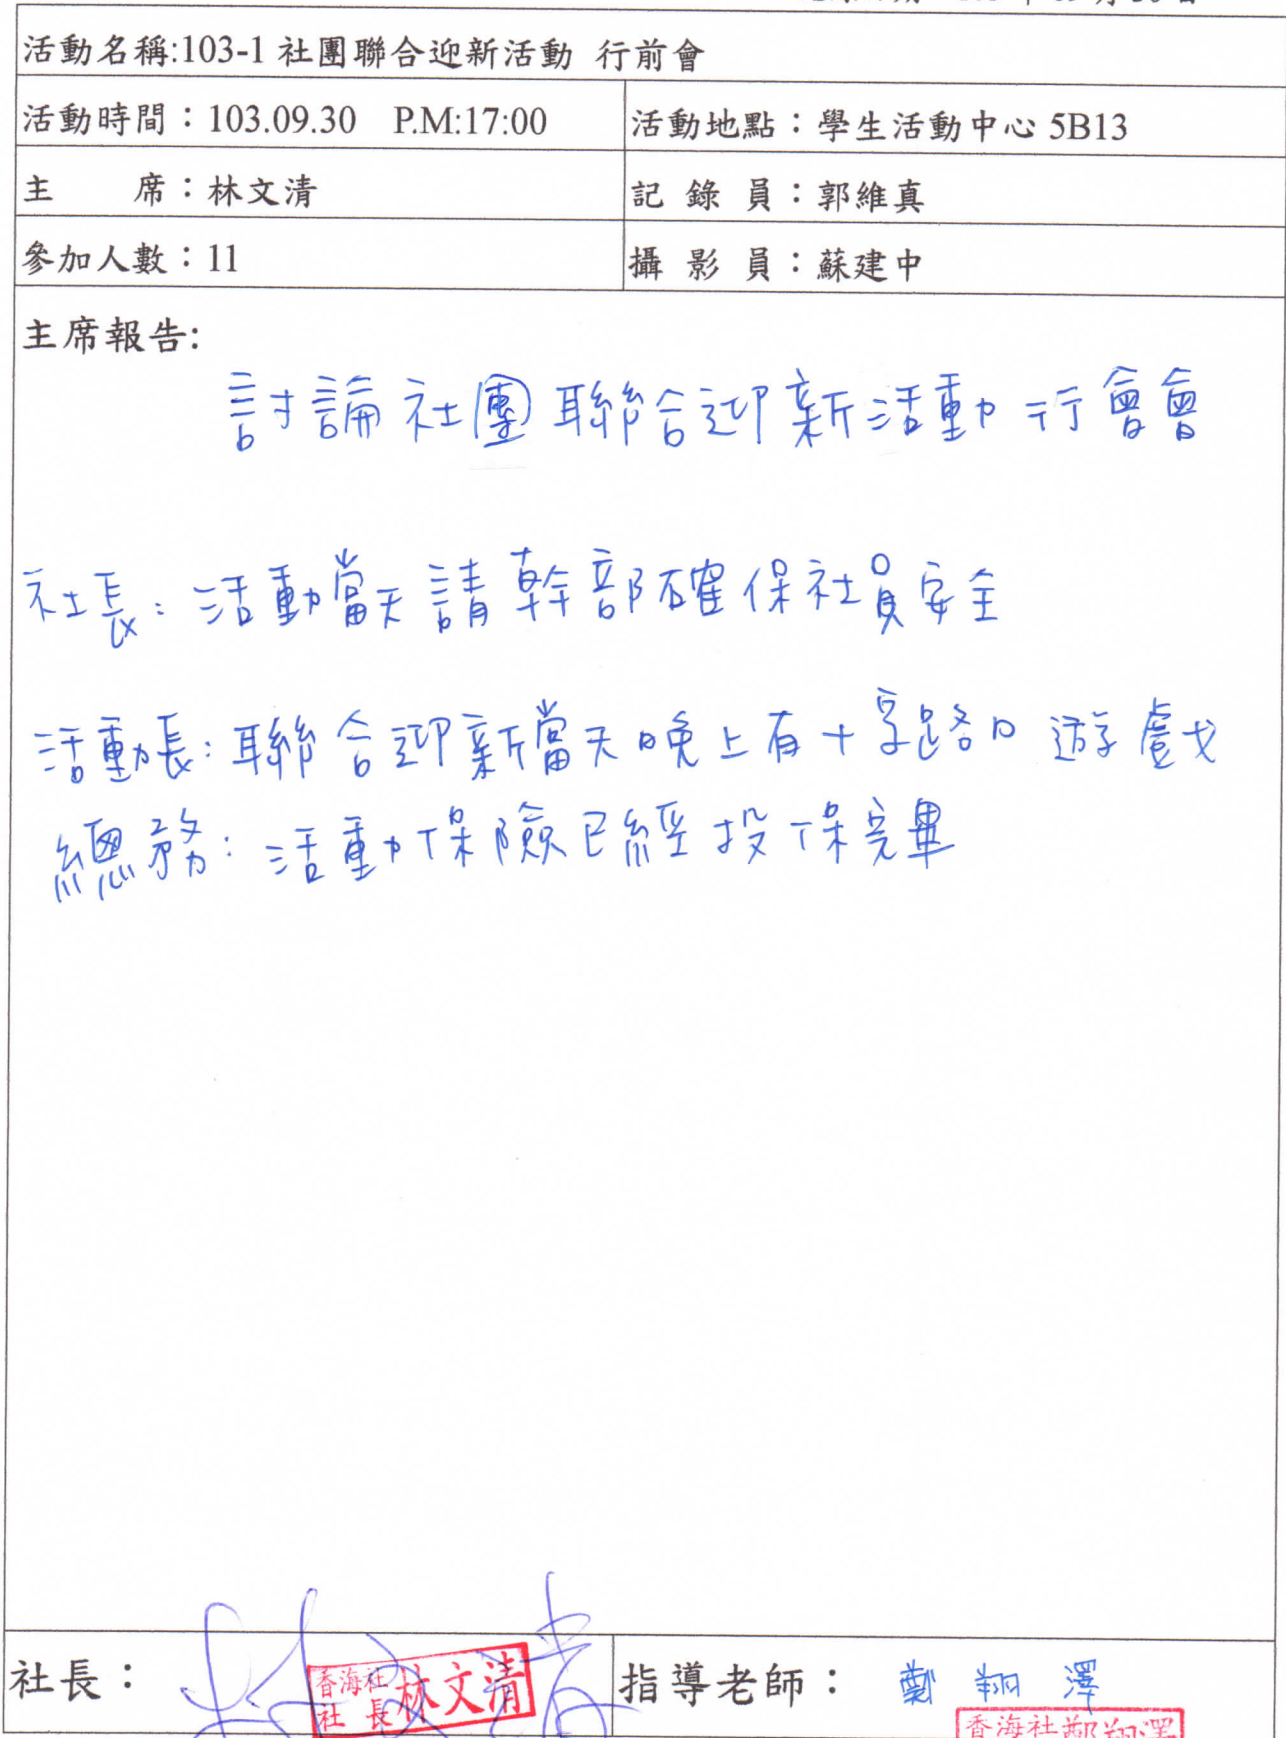 活動名稱:103-1 社團聯合迎新活動 行前會
活動時間：103.09.30 P.M:17:00
活動地點：學生活動中心 5B13
主 席：林文清
記 錄 員：郭維真
參加人數：11
攝 影 員：蘇建中
主席報告:
討論社團聯合迎新活動行會會
社長：活動當天請幹部確保社員安全
活動長：聯合迎新當天晚上有十字路口遊戲
總務：活動保險已經投保完畢
社長：
香海社
社長 林文清
指導老師： 鄭翔澤
香海社鄭翔澤